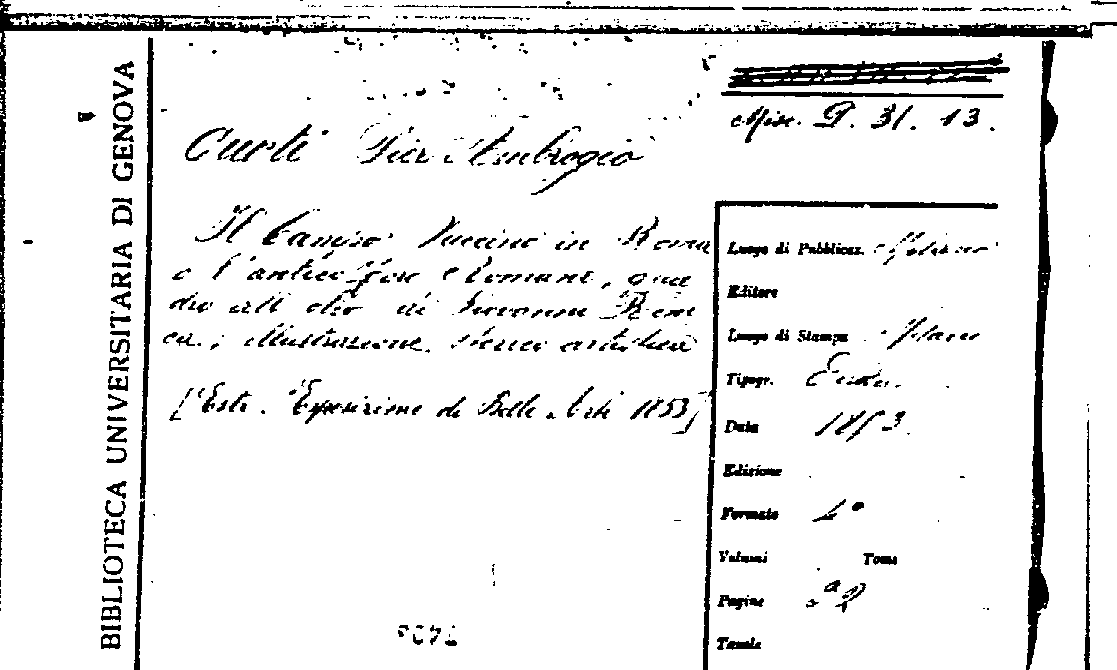 BIBLIOTECA UNIVERSITARIA DI GENOVA
Misc. D. 31. 13.
Curti Pier Ambrogio
Il Campo Vaccino in Roma
o l'antico foro Romano, qua
dro all'olio di Giovanni Ren
ca; illustrazione storico artistica
[Estr. Esposizione di Belle Arti 1853]
Luogo di Pubblicaz. Milano
Editore
Luogo di Stampa Milano
Tipogr.
Data 1853.
Edizione
Formato 4°
Volumi Tomo
Pagine
Tavole